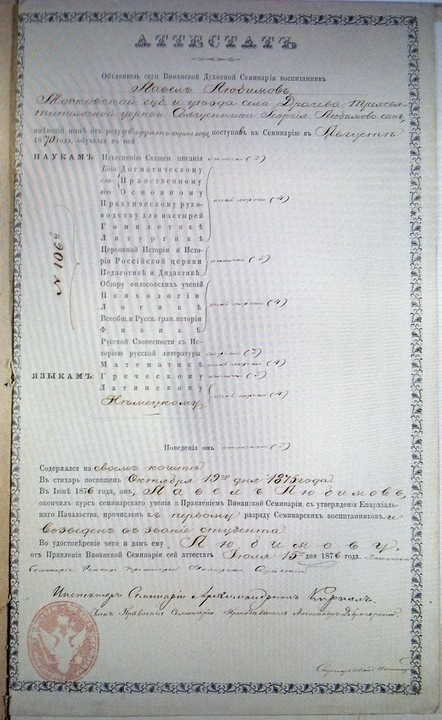 АТТЕСТАТЪ
Объявитель сего Виѳанской Духовной Семинаріи воспитанникъ
Павелъ Любимовъ,
Московской губ. и уѣзда села Драчева
церкви Священника Георгія Любимова сынъ,
имѣющій нынѣ отъ роду двадцать одинъ годъ, поступивъ въ Семинарію въ Августѣ
1870 года, обучался въ ней
НАУКАМЪ:
Изъясненію Священ. писанія отлично (5)
Догматическому
Нравственному
Основному
Практическому руко-
водству для пастырей
Гомилетикѣ
Литургикѣ
очень хорошо (4)
Церковной Исторіи и Исто-
ріи Россійской церкви
Педагогикѣ и Дидактикѣ
отлично (5)
Обзору философскихъ ученій
Психологіи
Логикѣ
Всеобщ. и Русск. граж. исторіи
Физикѣ
очень хорошо (4)
Русской Словесности съ Ис-
торіею русской литературы
Математикѣ очень хорошо (4)
ЯЗЫКАМЪ:
Греческому
Латинскому
Нѣмецкому
очень хорошо (4)
№ 106й
Поведенія онъ отличнаго (5)
Содержался на своемъ коштѣ
Въ стихарь посвященъ Октября 19го дня 1875 года
Въ Іюнѣ 1876 года, онъ, Павелъ Любимовъ,
окончилъ курсъ семинарскаго ученія и Правленіемъ Виѳанской Семинаріи, съ утвержденія Епархіаль-
наго Начальства, причисленъ къ первому разряду Семинарскихъ воспитанниковъ и
возведенъ въ званіе студента.
Во удостовѣреніе чего и данъ ему, Любимову,
отъ Правленія Виѳанской Семинаріи сей аттестатъ Іюля 15 дня 1876 года.
Инспекторъ Семинаріи Архимандритъ
Членъ Правленія Семинаріи Преподаватель